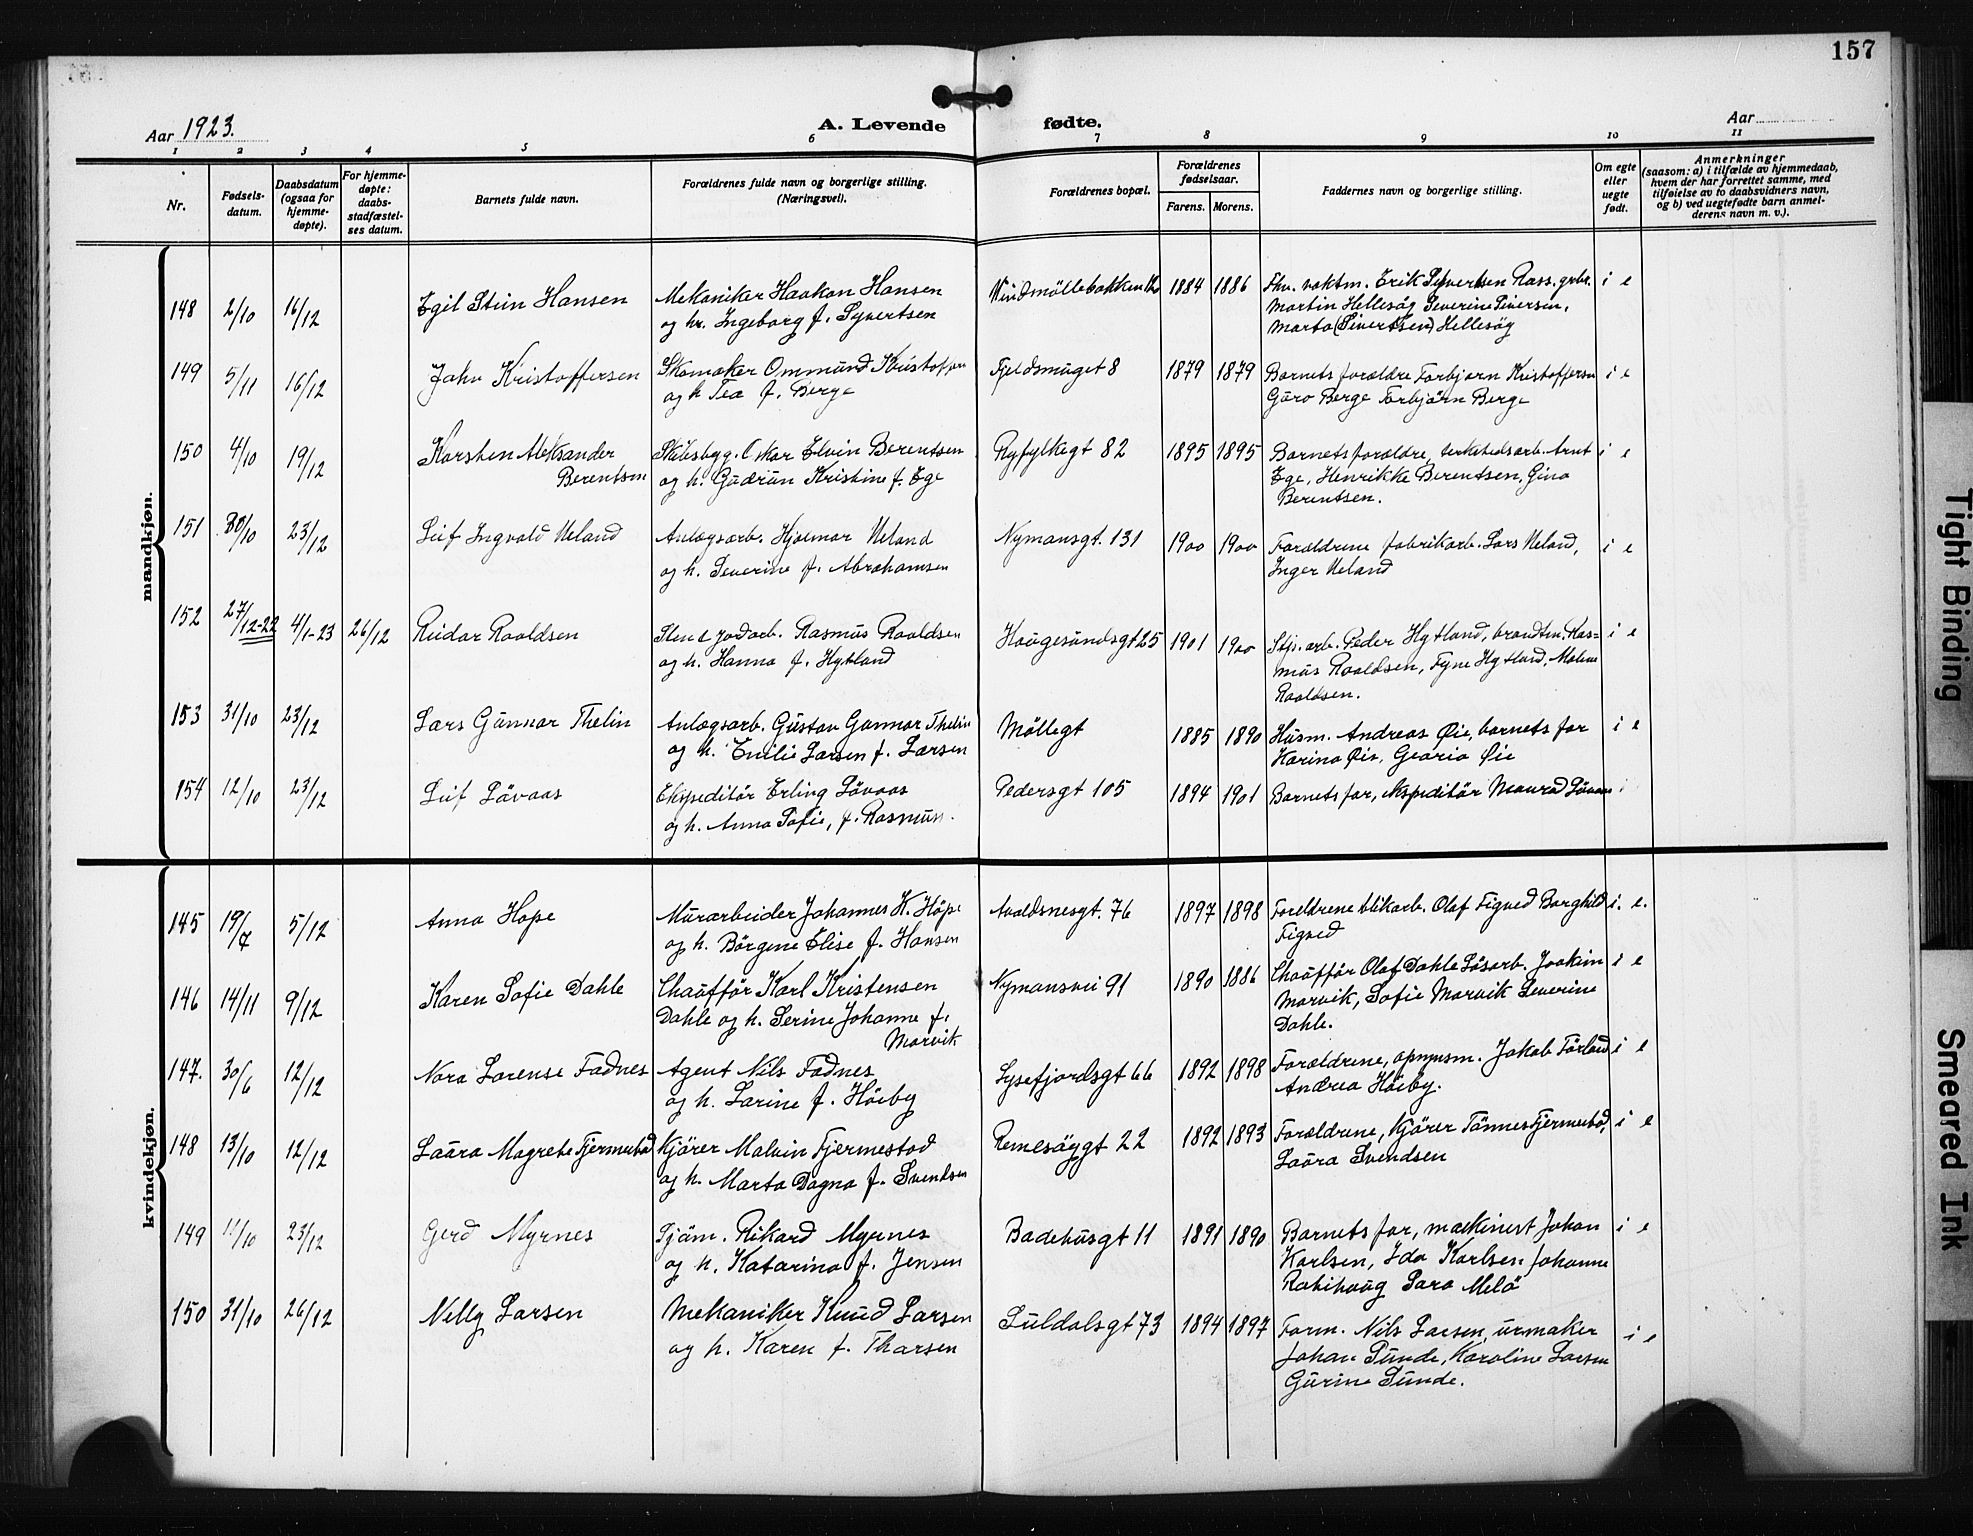 157
Aar 1923.
A. Levende fødte.
Aar
1 2 3 4 5 6 7 8 9 10 11
Nr.
Fødsels-
datum.
Daabsdatum
(ogsaa for
hjemme-
døpte).
For hjemme-
døpte:
daabs-
stadfæstel-
ses datum.
Barnets fulde navn.
Forældrenes fulde navn og borgerlige stilling.
(Næringsvei).
Forældrenes bopæl.
Forældrenes
fødselsaar.
Farens. Morens.
Faddernes navn og borgerlige stilling.
Om egte
eller
uegte
født.
Anmerkninger
(saasom: a) i tilfælde av hjemmedaab,
hvem der har forrettet samme, med
tilføielse av to daabsvidners navn,
og b) ved uegtefødte barn anmel-
derens navn m. v.).
mandkjøn.
148 2/10 16/12 Egil Stiin Hansen Mekaniker Haakon Hansen 1884 1886 Fhv. vaktm. Erik Syvertsen Rass. grbr. i e
og hr. Ingeborg f. Syvertsen Martin Hellesøy Severine Siversen,
Marta (Sivertsen) Hellesøy
149 5/11 16/12 John Kristoffersen Skomaker Ommund Kristoffersen Fjeldsmuget 8 1879 1879 Barnets forældre Torbjørn Kristoffersen i e
og h Tea f. Berge Guro Berge Torbjørn Berge
150 4/10 19/12 Karsten Aleksander Skibsbyg. Oskar Elvin Berentsen Ryfylkegt 82 1895 1895 Barnets forældre, verkstedsarb. Arnt i e
Berentsen og h. Gudrun Kristine f. Ege Ege, Henrikke Berentsen, Gina
Berentsen.
151 30/10 23/12 Leif Ingvald Ueland Anlægsarb. Hjalmar Ueland Nymansgt. 131 1900 1900 Forældrene fabrikarb. Lars Ueland, i e
og h. Severine f. Abrahamsen Inger Ueland
152 27/12-22 4/1-23 26/12 Reidar Roaldsen Rasmus Roaldsen Haugesundsgt 25 1901 1900 Stp. arb. Peder Hytland, brandtm. Ras- i e
og h. Hanna f. Hytland mus Roaldsen, Tyne Hytland, Malene
Roaldsen.
153 31/10 23/12 Lars Gunnar Thelin Anlægsarb. Gustav Gunnar Thelin Møllegt 1885 1890 Husm. Andreas Øie, barnets far i e
og h. Emilie Larsen f. Larsen Karina Øie, Georia Øie
154 12/10 23/12 Leif Løvaas Ekspeditør Erling Løvaas Pedersgt 105 1894 1901 Barnets far, ekspeditør Løvaas i
og h. Anna Sofie, f. Rasmuss.
kvindekjøn.
145 19/7 5/12 Anna Hope Murarbeider Johannes K. Hope Avaldsnesgt. 76 1897 1898 Foreldrene blikarb. Olaf Figved Borghild i. e.
og h. Børgene Elise f. Hansen Figved
146 14/11 9/12 Karen Sofie Dahle Chauffør Karl Kristensen Nymansvei 91 1890 1886 Chauffør Olaf Dahle Løsarb. Joakim i e
Dahle og h. Serine Johanne f. Marvik, Sofie Marvik Severine
Marvik Dahle.
147. 30/6 12/12 Nora Lorense Fadnes Agent Nils Fadnes Lysefjordsgt 66 1892 1898 Forældrene, opmusm. Jakob Førland i e
og h. Larine f. Høiby Andrea Høiby.
148 13/10 12/12 Laura Magrete Fjermestad Kjører Malvin Fjermestad Remesøygt 22 1892 1893 Forældrene, Kjører Tønnes Fjermestad, i e
og h. Marta Dagna f. Svendsen Laura Svendsen
149 11/10 23/12 Gerd Myrnes Sjøm. Rikard Myrnes Badehusgt 11 1891 1890 Barnets far, maskinist Johan i e
og h. Katarina f. Jensen Karlsen, Ida Karlsen, Johanne
Rabihaug Sara Melø
150 31/10 26/12 Nelly Larsen Mekaniker Knud Larsen Suldalsgt 73 1894 1897 Form. Nils Larsen, urmaker i e
og h. Karen f. Tharsen Johan Sunde, Karoline Larsen
Gurine Sunde.
Tight Binding
Smeared Ink